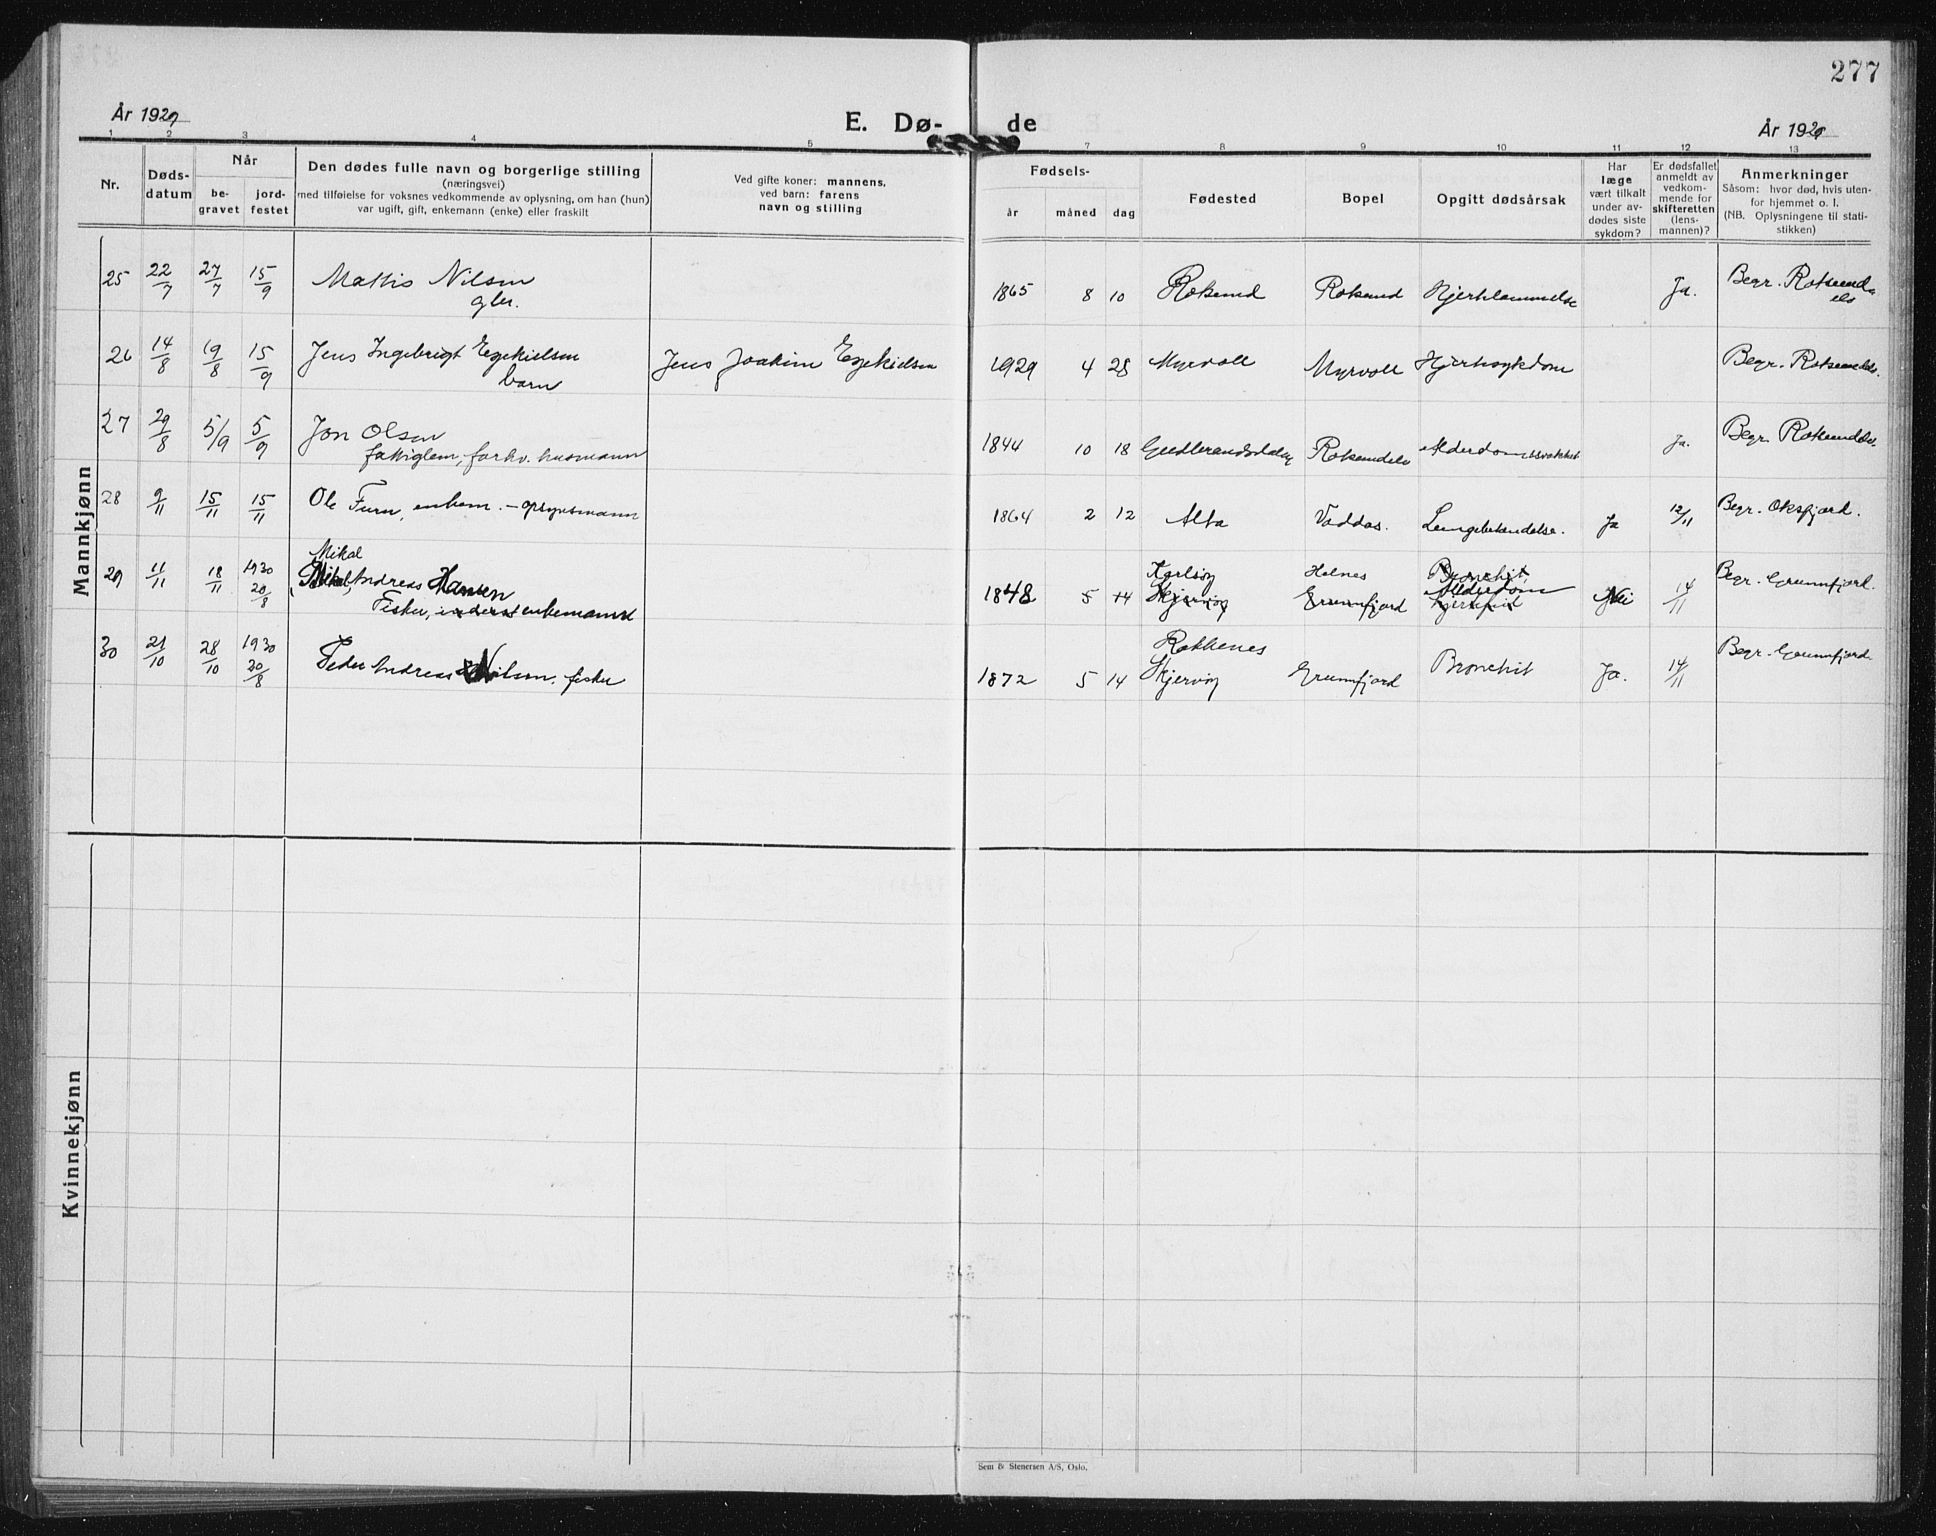 277
År 1929
E. Dø- de
År 1929
1 2 3 4 5 7 8 9 10 11 12 13
Nr.
Døds-
datum
Når
be-
gravet
jord-
festet
Den dødes fulle navn og borgerlige stilling
(næringsvei)
med tilføielse for voksnes vedkommende av oplysning, om han (hun)
var ugift, gift, enkemann (enke) eller fraskilt
Ved gifte koner: mannens,
ved barn: farens
navn og stilling
Fødsels-
år måned dag
Fødested
Bopel
Opgitt dødsårsak
Har
læge
vært tilkalt
under av-
dødes siste
sykdom?
Er dødsfallet
anmeldt av
vedkom-
mende for
skifteretten
(lens-
mannen)?
Anmerkninger
Såsom: hvor død, hvis uten-
for hjemmet o. l.
(NB. Oplysningene til stati-
stikken)
Mannkjønn
25 22/7 27/7 15/9 Mattis Nilsen 1865 8 10 Rotsund Rotsund Hjertelammelse Ja. Begr. Rotsundelv
26 14/8 19/8 15/9 Jens Ingebrigt Ezekielsen Jens Joakim Ezekielsen 1929 4 28 Myrvoll Myrvoll Hjertesykdom Begr. Rotsundelv.
barn
27 29/8 5/9 5/9 Jon Olsen 1844 10 18 Gudbrandsdalen Rotsundelv Alderdomssvakhet Ja. Begr. Rotsundelv.
fattiglem, forhv. husmann
28 9/11 15/11 15/11 Ole Furu, enkem. – opsynsmann 1864 2 12 Alta Vaddas. Lungebetændelse. Ja 12/11 Begr. Oksfjord.
Mikal
29 11/11 18/11 1930 20/8 Andreas Hansen Karlsøy Skjervøy 1848 5 14 Holnes Grunnfjord Bronchit Alderdom Nei 14/11 Begr. Grunnfjord.
Fisker, inderst enkemann
30 21/10 28/10 1930 20/8 Peder Andreas Nilsen, fisker 1872 5 14 Rakkenes Skjervøy Grunnfjord Bronchit Ja. 14/11 Begr. Grunnfjord.
Kvinnekjønn
Sem & Stenersen A/S, Oslo.